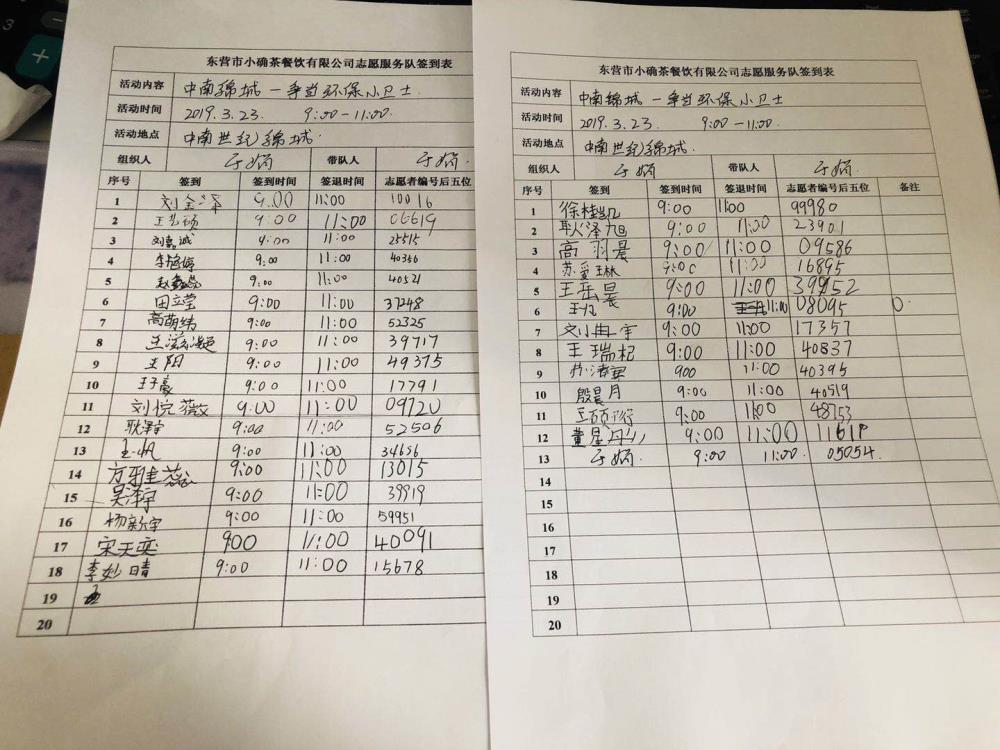 东营市小确茶餐饮有限公司志愿服务队签到表
活动内容 中南锦城一争当环保小卫士
活动时间 2019.3.23 9:00-11:00
活动地点 中南世纪锦城.
组织人 于娟 带队人 于娟.
序号 签到 签到时间 签退时间 志愿者编号后五位
1 刘金泽 9:00 11:00 10016
2 王艺硕 9:00 11:00 06619
3 刘嘉诚 9:00 11:00 25515
4 9:00 11:00 40356
5 9:00 11:00 40521
6 田立莹 9:00 11:00 37248
7 高萌绮 9:00 11:00 52325
8 9:00 11:00 39717
9 王阳 9:00 11:00 49375
10 王子豪 9:00 11:00 17791
11 刘悦薇 9:00 11:00 09720
12 耿泽宇 9:00 11:00 52506
13 王帆 9:00 11:00 34656
14 方雅蕊 9:00 11:00 13015
15 吴泽宇 9:00 11:00 39919
16 杨新宇 9:00 11:00 59951
17 宋天奕 900 11:00 40091
18 李妙晴 9:00 11:00 15678
19
20
东营市小确茶餐饮有限公司志愿服务队签到表
活动内容 中南锦城一争当环保小卫士
活动时间 2019.3.23 9:00-11:00
活动地点 中南世纪锦城.
组织人 于娟 带队人 于娟.
序号 签到 签到时间 签退时间 志愿者编号后五位 备注
1 徐桂凯 9:00 11:00 99980
2 耿泽旭 9:00 11:00 23901
3 高羽晨 9:00 11:00 09586
4 苏爱琳 9:00 11:00 16895
5 王岳昊 9:00 11:00 39952
6 9:00 11:00 08095
7 9:00 11:00 17357
8 王瑞杞 9:00 11:00 40837
9 900 11:00 40395
10 殷晨月 9:00 11:00 40519
11 9:00 11:00 48753
12 9:00 11:00
13 于娟 9:00 11:00 05054.
14
15
16
17
18
19
20